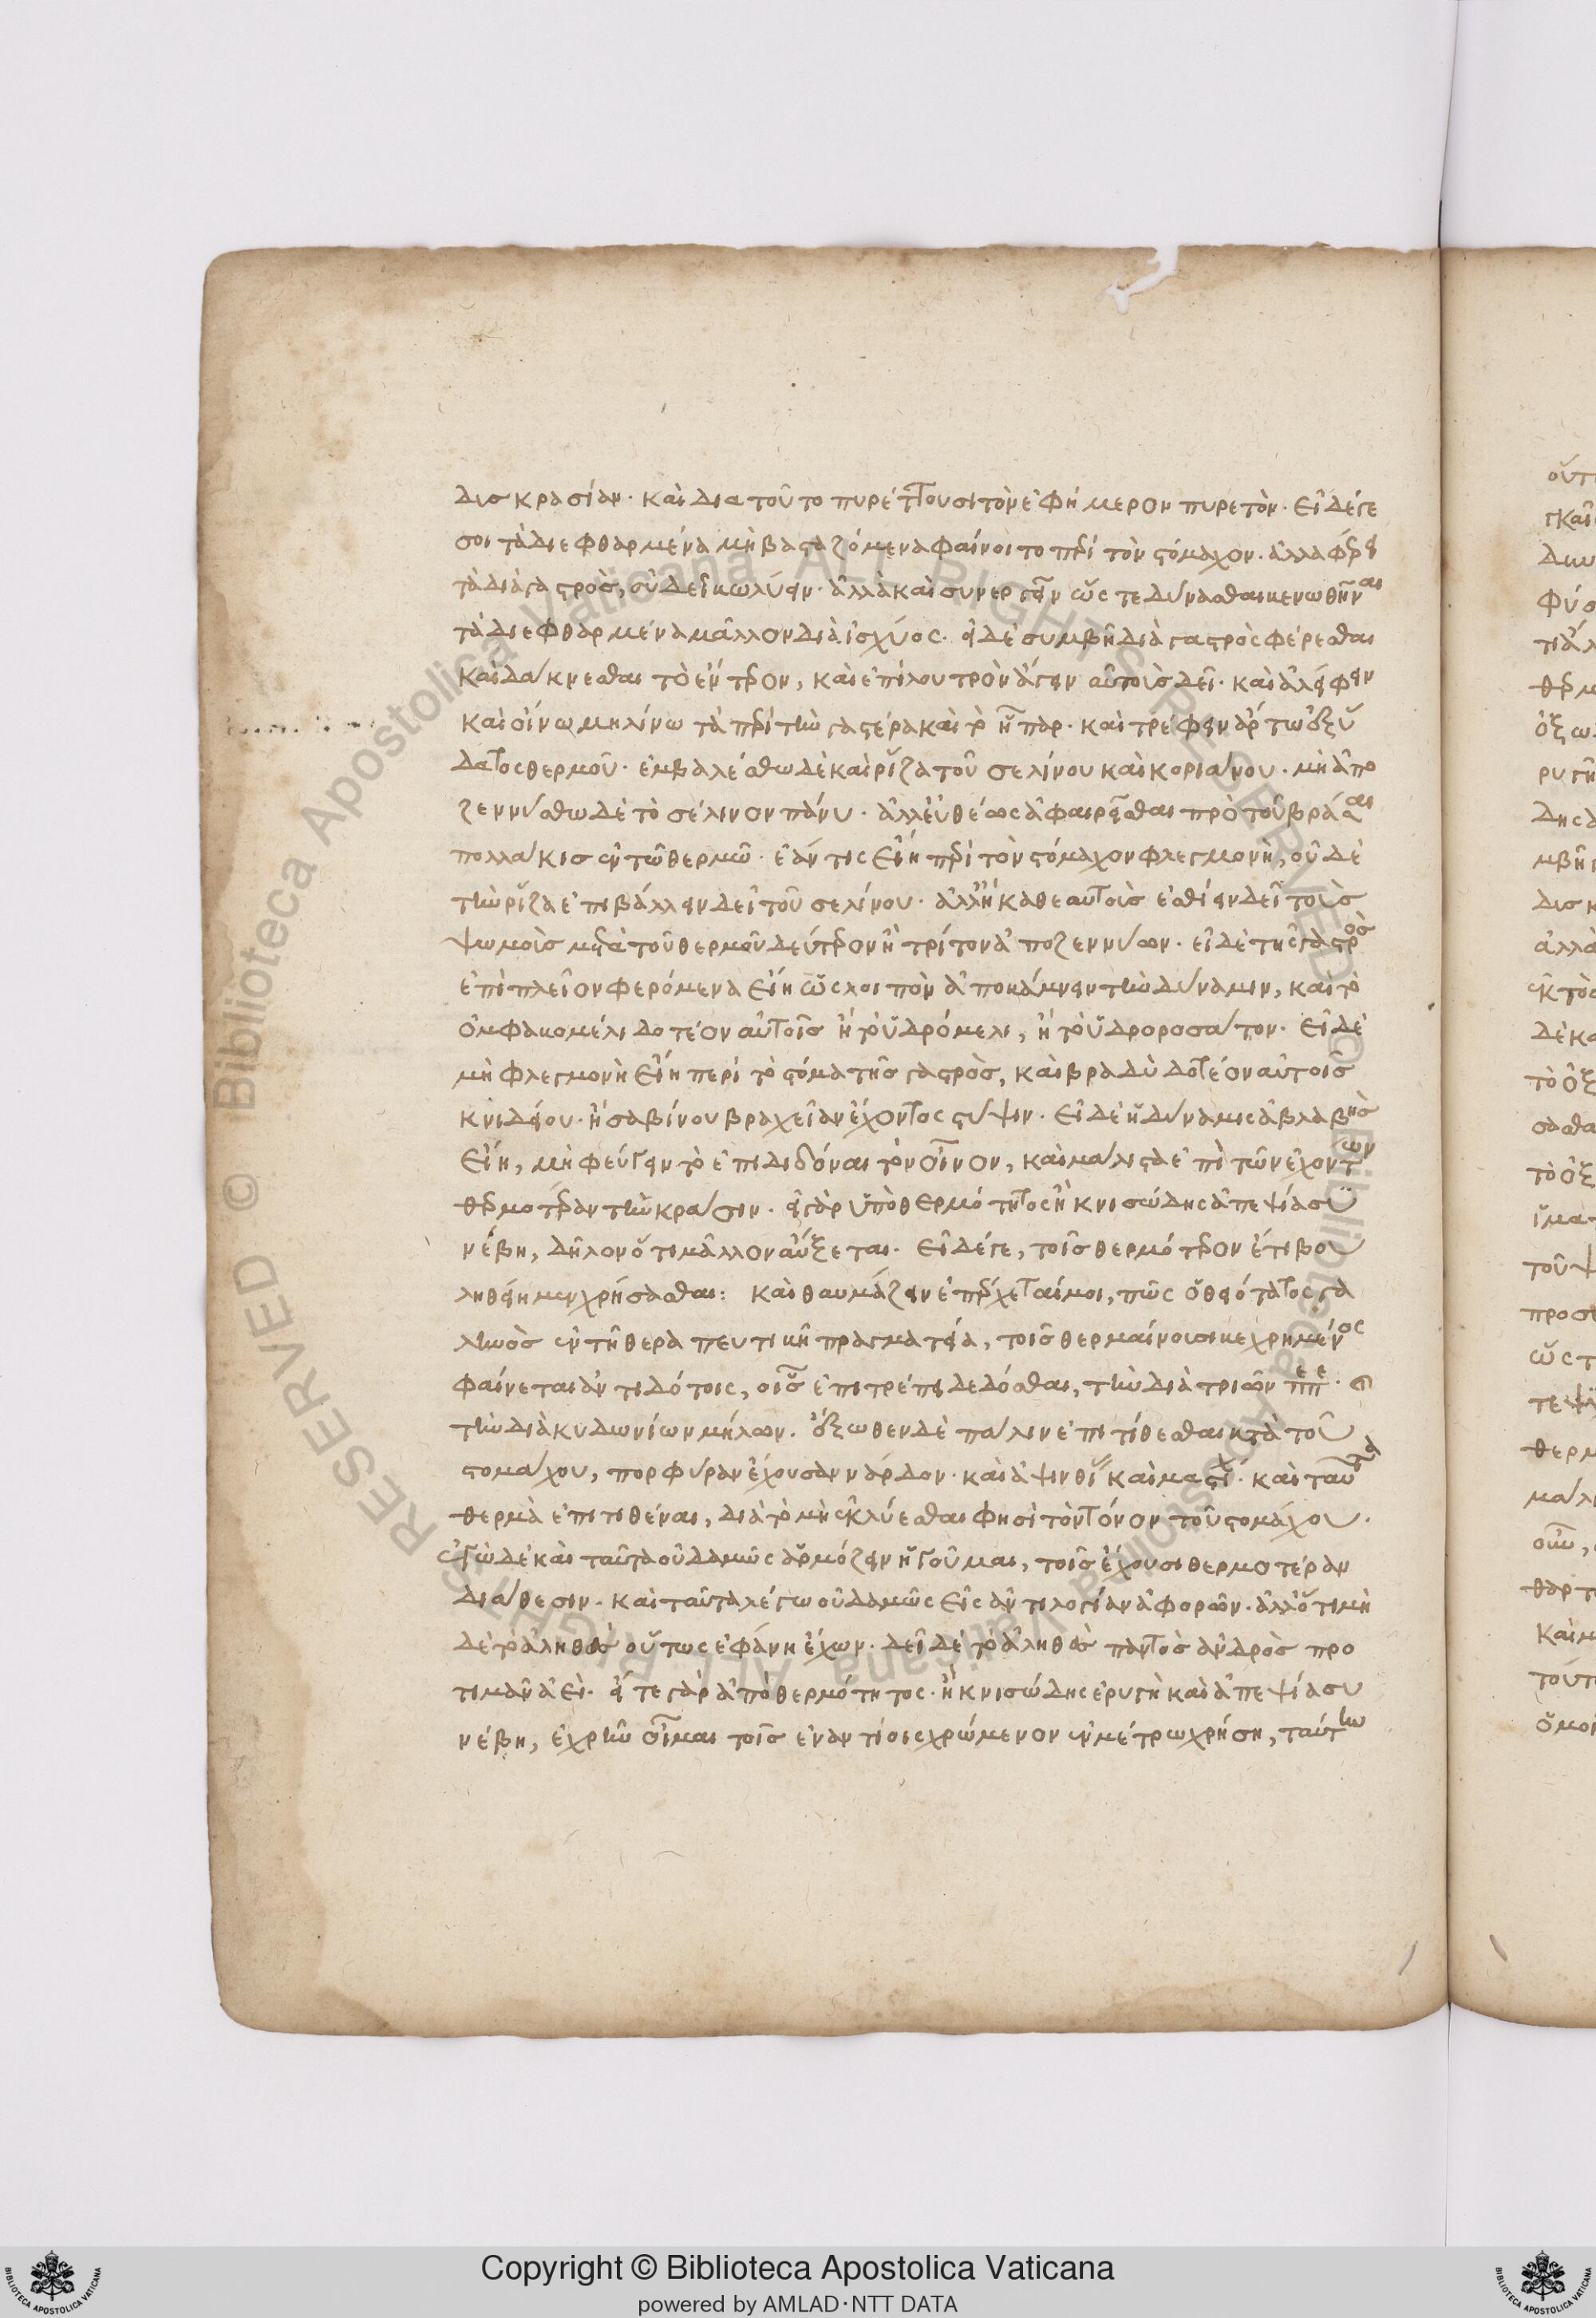 δισκρασίαν· καὶ δια τοῦτο πυρέττουσι τὸν ἐφήμερον πυρετὸν· εἰ δέ γε
σοι τὰ διεφθαρμένα μὴ βασταζόμενα φαίνοιτο περὶ τὸν στόμαχον· ἀλλα φέρει
τὰ διὰ γαστρὸς, οὐ δεῖ κωλύειν· ἀλλὰ καὶ συνεργεῖν ὥς τε δύνασθαι κενωθῆναι
τὰ διεφθαρμένα μᾶλλον διὰ ἰσχύος· εἰ δὲ συμβῆ διὰ γαστρὸς φέρεσθαι
καὶ δάκνεσθαι τὸ ἔντερον, καὶ ἐπὶ λουτρὸν ἄγειν αὐτοὺς δεῖ· καὶ ἀλείφειν
καὶ οἴνω μηλίνω τὰ περὶ τὴν γαστέρα καὶ τὸ ἧπαρ· καὶ τρέφειν ἄρτω ἐξ ὕ
δατος θερμοῦ· ἐμβαλέσθω δὲ καὶ ῥίζα τοῦ σελίνου καὶ κοριάνου· μὴ ἀπο
ζεννύσθω δὲ τὸ σέλινον πάνυ· ἀλλ' εὐθέως ἀφαιρεῖσθαι πρὸ τοῦ βράσαι
πολλάκις ἐν τῶ θερμῶ· ἐάν τις εἴη περὶ τὸν στόμαχον φλεγμονὴ, οὐδὲ
τὴν ῥίζα ἐπιβάλλειν δεῖ τοῦ σελίνου· ἀλλ' ἢ καθεαυτοὺς ἐσθίειν δεῖ τοὺς
ψωμοὺς μετὰ τοῦ θερμοῦ δεύτερον ἢ τρίτον ἀποζεννύων· εἰ δὲ τῆς γαστρὸς
ἐπὶ πλεῖον φερόμενα εἴη ὥς λοιπὸν ἀποκάμνειν τὴν δύναμιν, καὶ τὸ
ὀμφακομέλι δοτέον αὐτοῖς ἢ τὸ ὑδρόμελι, ἢ τὸ ὑδροροσάτον· εἰ δὲ
μὴ φλεγμονὴ εἴη περὶ τὸ στόμα τῆς γαστρὸς, καὶ βραδὺ δοτέον αὐτοῖς
κνιδείου· ἢ σαβίνου βραχεῖαν ἔχοντος στύψιν· εἰ δὲ ἡ δύναμις ἀβλαβὴς
εἴη, μὴ φεύγειν τὸ ἐπιδιδόναι τὸν οἶνον, καὶ μάλιστα ἐπὶ τῶν ἐχόντων
θερμοτέραν τὴν κρᾶσιν· εἰ γὰρ ὑπὸ θερμότητος ἢ κνισώδης ἀπεψία συ
νέβη, δῆλον ὅτι μᾶλλον αὔξεται· εἰ δέ γε, τοῖς θερμότερον ἔτι βου
ληθείημεν χρήσασθαι: καὶ θαυμάζειν ἐπέρχεταί μοι, πῶς ὁ θειότατος γα
ληνὸς ἐν τῆ θεραπευτικῆ πραγματεία, τοῖς θερμαίνουσι κεχρημένος
φαίνεται ἀντιδότοις, οἷς ἐπιτρέπει δεδόσθαι, τὴν διὰ τριῶν πεπε· ἢ
τὴν διὰ κυδωνίων μήλων· ἔξωθεν δὲ πάλιν ἐπιτίθεσθαι κατὰ τοῦ
στομάχου, πορφύραν ἔχουσαν νάρδον· καὶ ἀψινθίου καὶ μαστίχ· καὶ ταῦτα
θερμὰ ἐπιτιθέναι, διὰ τὸ μὴ ἐκλύεσθαι φησὶ τὸν τόνον τοῦ στομάχου·
ἐγὼ δὲ καὶ ταῦτα οὐδαμῶς ἁρμόζειν ἡγοῦμαι, τοῖς ἔχουσι θερμοτέραν
διάθεσιν· καὶ ταῦτα λέγω οὐδαμῶς εἰς ἀντιλογίαν ἀφορῶν· ἀλλ' ὅτι μὴ
δὲ τὸ ἀληθὲς οὕτως ἐφάνη ἔχων· δεῖ δὲ τὸ ἀληθὲς παντὸς ἀνδρὸς προ
τιμᾶν ἀεὶ· εἴτε γὰρ ἀπὸ θερμότητος· ἢ κνισώδης ἐρυγὴ καὶ ἀπεψία συ
νέβη, ἐχρῆν οἶμαι τοῖς ἐναντίοις χρώμενον ἐν μέτρω χρήση, ταύτην
Copyright © Biblioteca Apostolica Vaticana
powered by AMLAD·NTT DATA